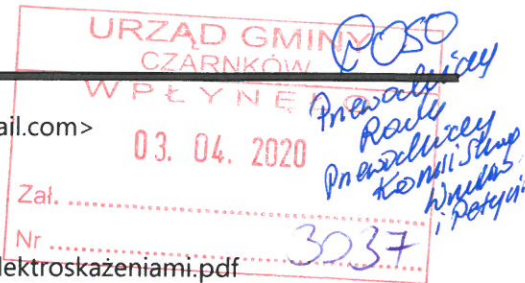 URZĄD GMINY
CZARNKÓW
WPŁYNĘŁO
ail.com>
03. 04. 2020
Zał. ....................
Nr ....................
3037
lektroskażeniami.pdf
OSO
Przewodniczący
Rady
Przewodniczący
Komisji Skarg
Wniosków
i Petycji